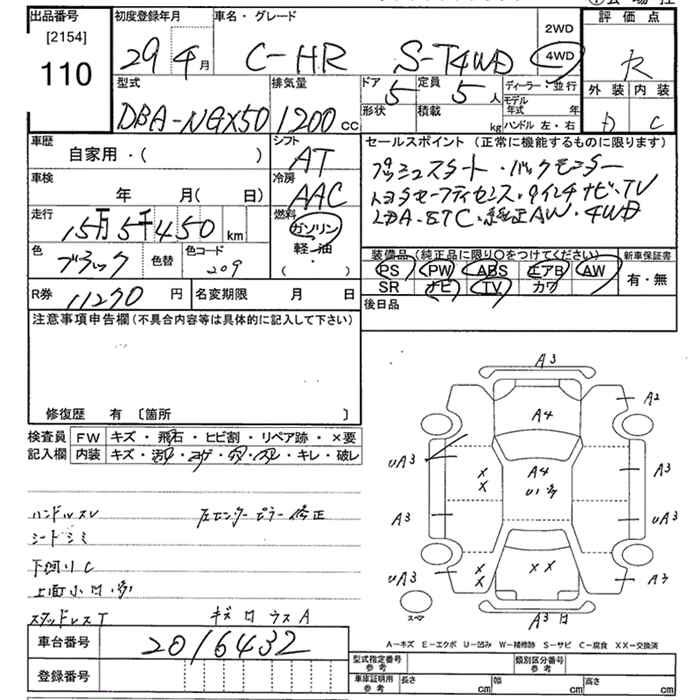 出品番号
[2154]
110
初度登録年月
29年4月
車名・グレード
C-HR S-T4WD
2WD
4WD
評価点
R
外装 内装
D C
型式
DBA-NGX50
排気量
1200cc
ドア
5
定員
5人
形状
積載
kg
ディーラー・並行
モデル年式 年
ハンドル 左・右
車歴
自家用・( )
シフト
AT
セールスポイント(正常に機能するものに限ります)
プッシュスタート・バックモニター
トヨタセーフティセンス・9インチナビ・TV
LDA・ETC・純正AW・4WD
車検
年 月( 日)
冷房
AAC
走行
15万5千450km
燃料
ガソリン
軽油
( )
色
ブラック
色替
色コード
209
装備品(純正品に限り〇をつけてください)
PS PW ABS エアB AW
SR ナビ TV カワ
新車保証書
有・無
R券
11270円
名変期限 月 日
後日品
注意事項申告欄(不具合内容等は具体的に記入して下さい)
修復歴 有 〔箇所 〕
検査員
記入欄
FW キズ・飛石・ヒビ割・リペア跡・×要
内装 キズ・汚れ・コゲ・穴・スレ・キレ・破レ
ハンドルスレ
左センターピラー修正
シートシミ
下回りC
上面小凹多
スタッドレスT
キズ凹ウスA
A3
A2
A4
UA3
A3
A4
U1多
A3
UA3
UA3
A3
A3凹
スマ
A=キズ E=エクボ U=凹み W=補修跡 S=サビ C=腐食 XX=交換済
車台番号
2016432
登録番号
型式指定番号
参考
類別区分番号
参考
車庫証明用
参考
長さ cm
幅 cm
高さ cm